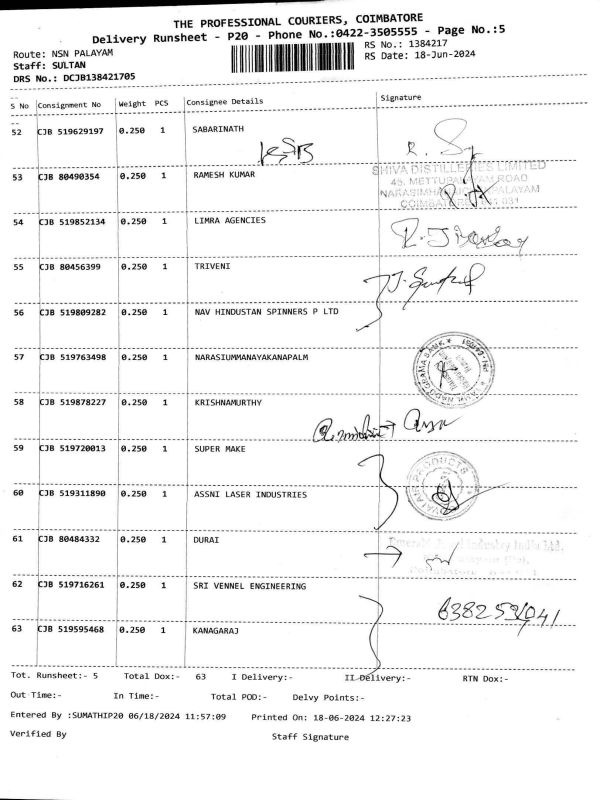 THE PROFESSIONAL COURIERS, COIMBATORE
Delivery Runsheet - P20 - Phone No.:0422-3505555 - Page No.:5
Route: NSN PALAYAM
RS No.: 1384217
Staff: SULTAN
RS Date: 18-Jun-2024
DRS No.: DCJB138421705
S No Consignment No Weight PCS Consignee Details Signature
52 CJB 519629197 0.250 1 SABARINATH
53 CJB 80490354 0.250 1 RAMESH KUMAR
SHIVA DISTILLERIES LIMITED
45, METTUPALAYAM ROAD
COIMBATORE
54 CJB 519852134 0.250 1 LIMRA AGENCIES
55 CJB 80456399 0.250 1 TRIVENI
56 CJB 519809282 0.250 1 NAV HINDUSTAN SPINNERS P LTD
57 CJB 519763498 0.250 1 NARASIUMMANAYAKANAPALM
58 CJB 519878227 0.250 1 KRISHNAMURTHY
59 CJB 519720013 0.250 1 SUPER MAKE
PRODUCTS
60 CJB 519311890 0.250 1 ASSNI LASER INDUSTRIES
61 CJB 80484332 0.250 1 DURAI
Industry India Ltd.
62 CJB 519716261 0.250 1 SRI VENNEL ENGINEERING
63 CJB 519595468 0.250 1 KANAGARAJ
Tot. Runsheet:- 5 Total Dox:- 63 I Delivery:- II Delivery:- RTN Dox:-
Out Time:- In Time:- Total POD:- Delvy Points:-
Entered By :SUMATHIP20 06/18/2024 11:57:09 Printed On: 18-06-2024 12:27:23
Verified By Staff Signature